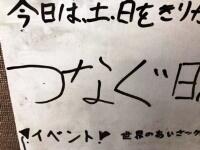 今日は、土・日をきりか
つなぐ日
イベント!
世界のあいさつ